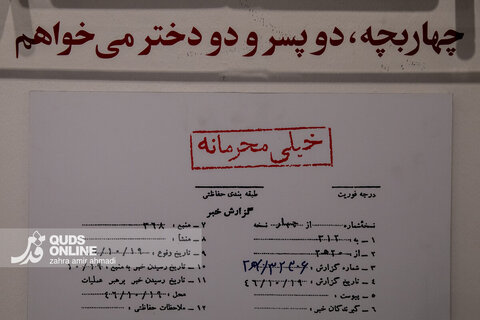 چهار بچه، دو پسر و دو دختر می‌خواهم
خیلی محرمانه
درجه فوریت
طبقه بندی حفاظتی
گزارش خبر
نسخه شماره از چهار نسخه
۱ - به ۳۱۲
۲ - از ۲۰ هـ ۲۰
۳ - شماره گزارش
۴ - تاریخ گزارش ۴۶/۱۰/۱۹
۵ - پیوست
۶ - گیرندگان خبر
۷ - منبع ۳۶۸
۸ - منشأ
۹ - تاریخ وقوع ۱۰/۱۹
۱۰ - تاریخ رسیدن خبر به منبع ۱۰/۱۹
۱۱ - تاریخ رسیدن خبر به رهبر عملیات
محل ۴۶/۱۰/۱۹
۱۲ - ملاحظات حفاظتی
قدس
QUDS
ONLINE
zahra amir ahmadi